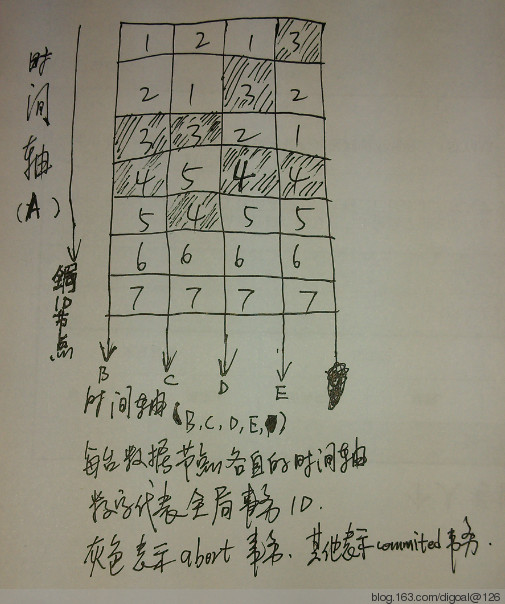 时间轴
(A)
1 2 1 3
2 1 3 2
3 3 2 1
4 5 4 4
5 4 5 5
6 6 6 6
7 7 7 7
ID节点
B C D E
时间轴 (B,C,D,E, )
每台数据节点各自的时间轴
数字代表全局事务ID.
灰色表示abort事务. 其他表示commited事务.
blog.163.com/digoal@126